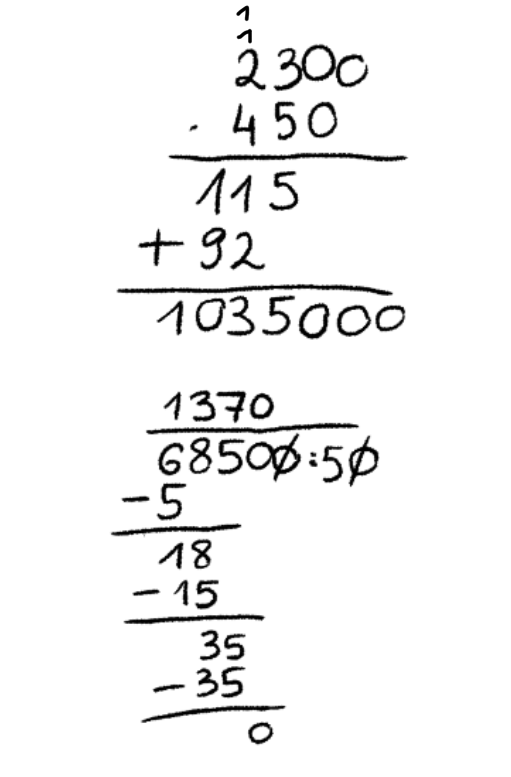 1
1
2300
· 450
115
+ 92
1035000
1370
68500:50
- 5
18
- 15
35
- 35
0